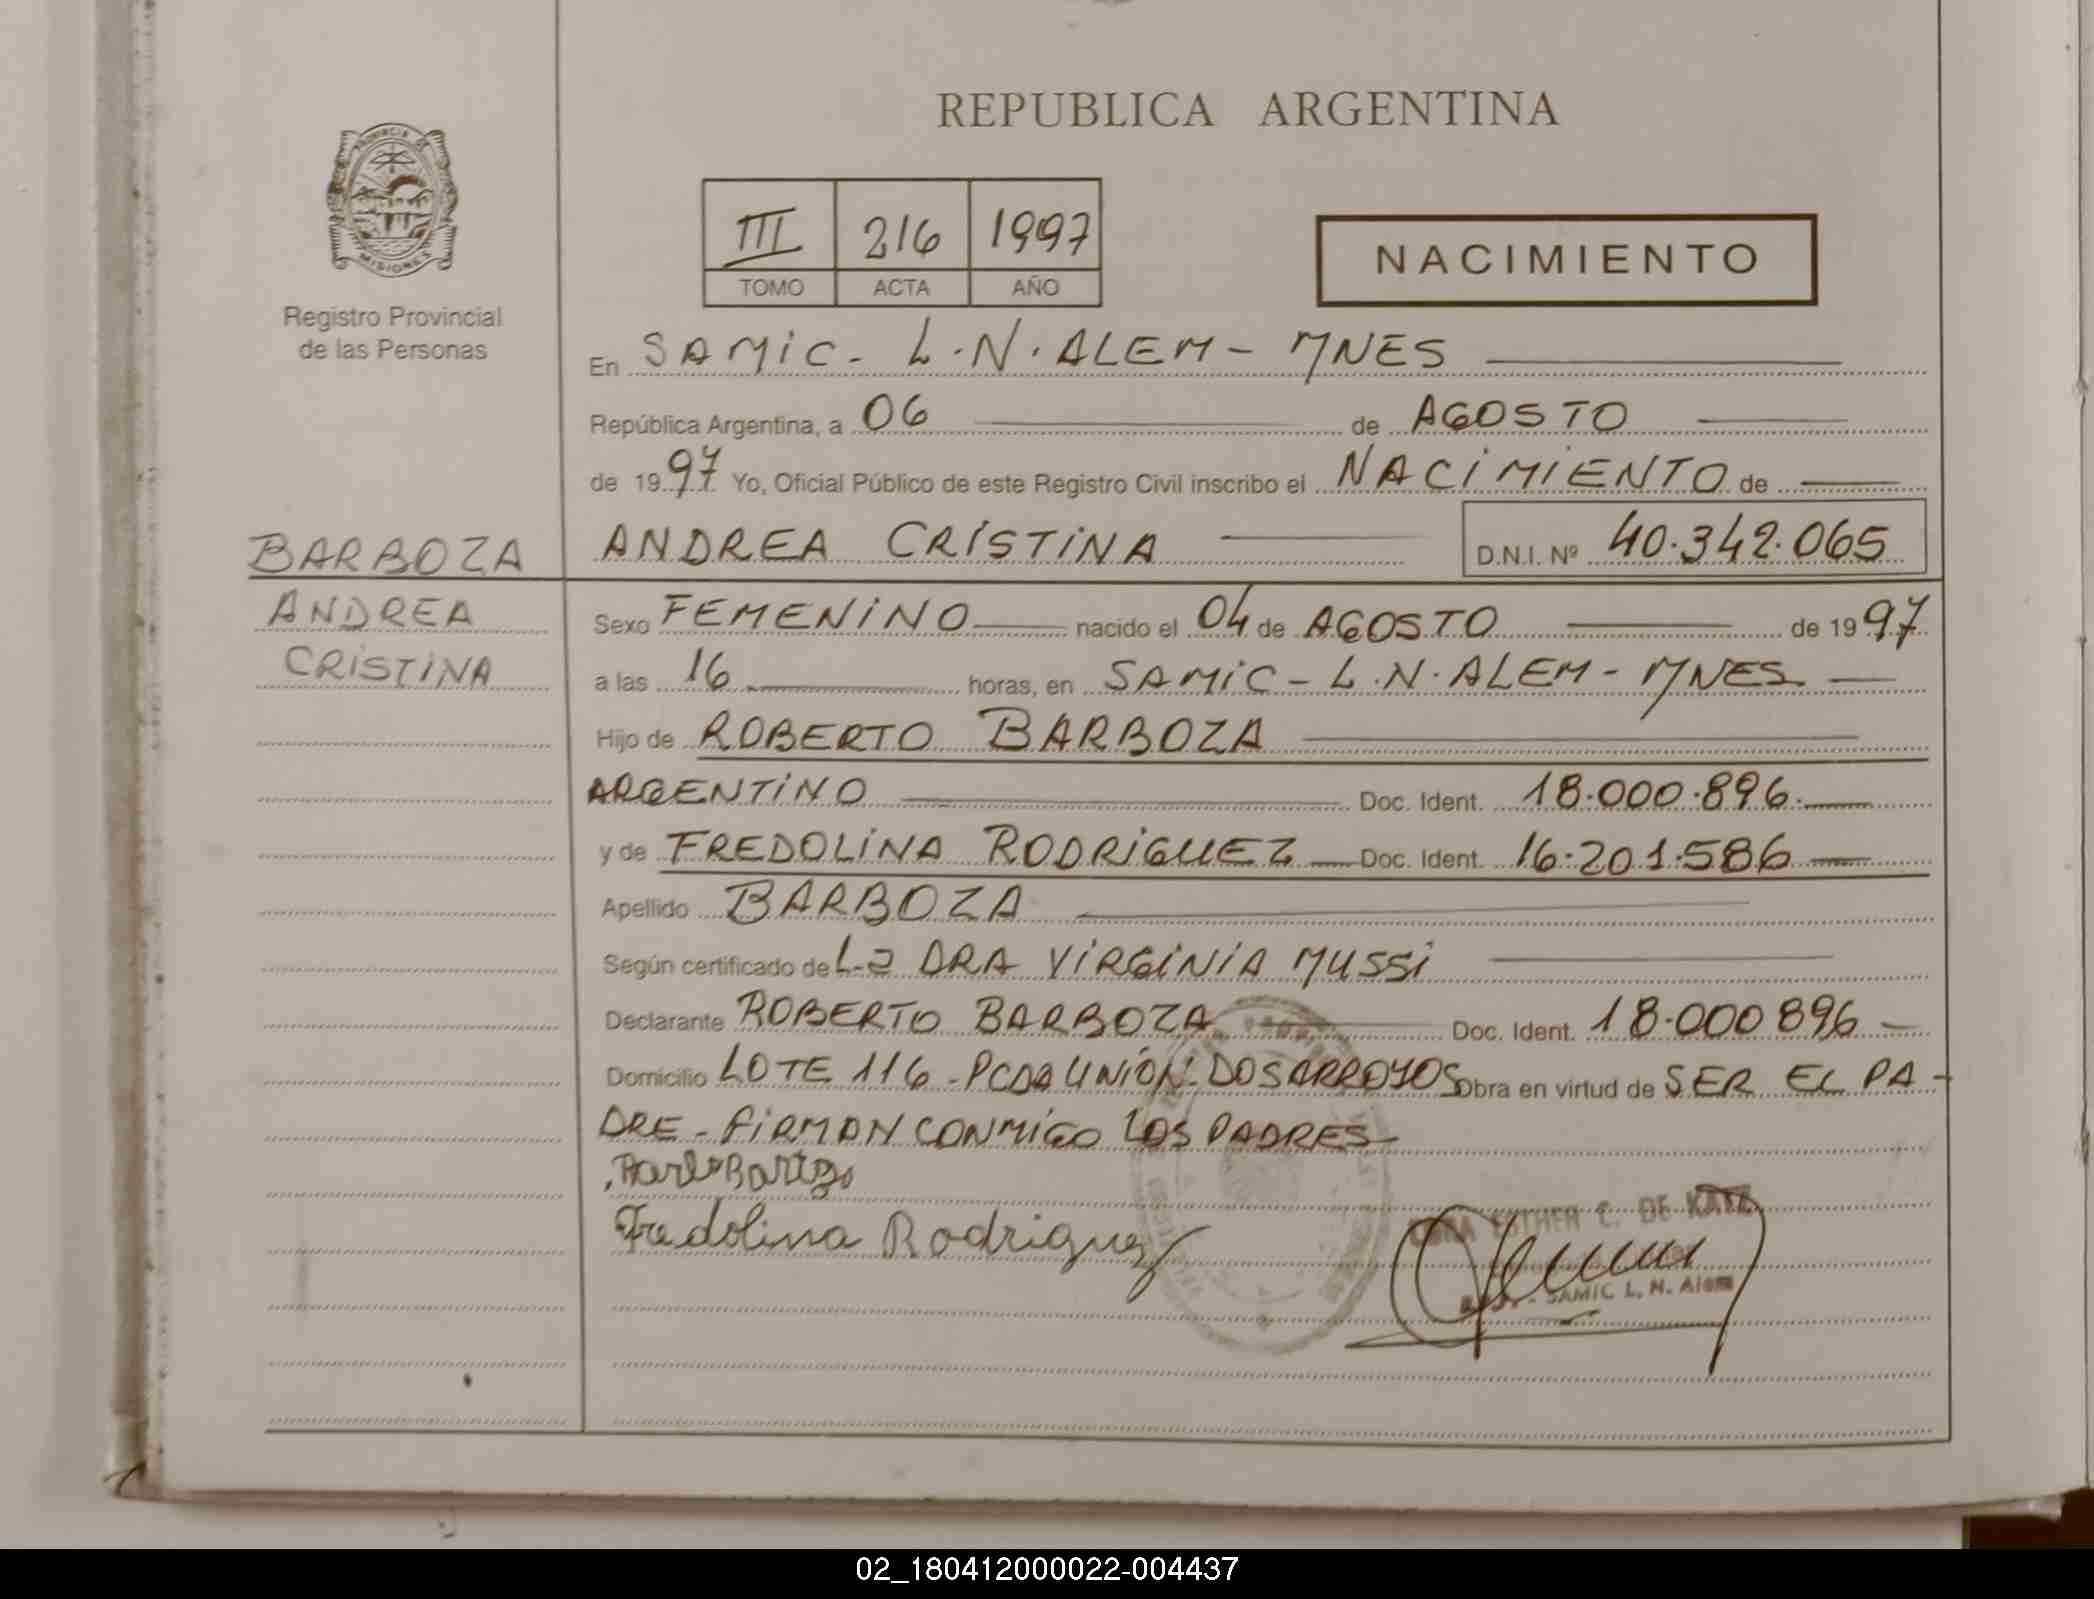 REPUBLICA ARGENTINA
PROVINCIA DE
MISIONES
Registro Provincial
de las Personas
III 216 1997
TOMO ACTA AÑO
NACIMIENTO
En SAMIC - L.N. ALEM - MNES
República Argentina, a 06 de AGOSTO
de 1997 Yo, Oficial Público de este Registro Civil inscribo el NACIMIENTO de
BARBOZA ANDREA CRISTINA D.N.I. Nº 40.342.065
ANDREA
CRISTINA
Sexo FEMENINO nacido el 04 de AGOSTO de 1997
a las 16 horas, en SAMIC - L.N. ALEM - MNES
Hijo de ROBERTO BARBOZA
ARGENTINO Doc. Ident. 18.000.896
y de FREDOLINA RODRIGUEZ Doc. Ident. 16.201.586
Apellido BARBOZA
Según certificado de L-2 DRA VIRGINIA MUSSI
Declarante ROBERTO BARBOZA Doc. Ident. 18.000896
Domicilio LOTE 116 - PCDA UNIÓN - DOS ARROYOS Obra en virtud de SER EL PA-
DRE - FIRMAN CONMIGO LOS PADRES
Fredolina Rodriguez
ESTHER C. DE KATZ
SAMIC L. N. Alem
02_180412000022-004437